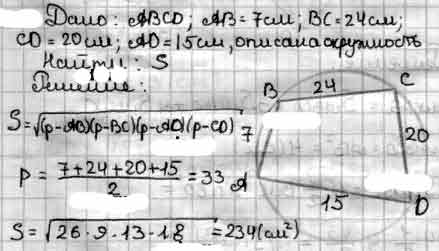 Дано: ABCD; AB=7см; BC=24см;
CD=20см; AD=15см, описана окружность
Найти: S
Решение:
S=√(p-AB)(p-BC)(p-AD)(p-CD)
p = (7+24+20+15)/2 = 33
S=√26·9·13·18=234(см²)
B
24
C
7
20
A
15
D